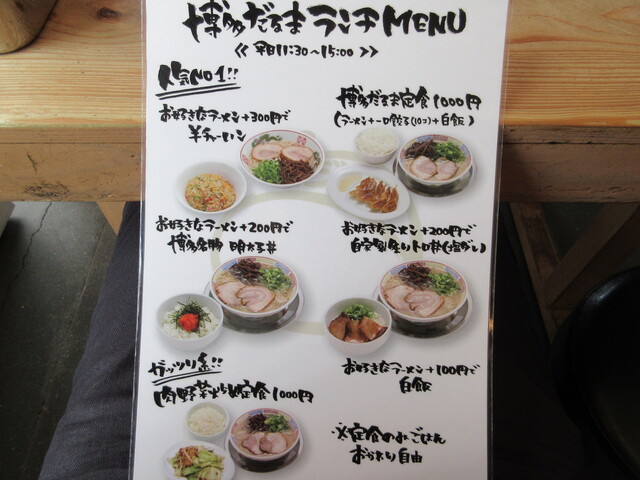 博多だるまランチMENU
≪ 平日11:30～15:00 ≫
人気NO1!!
お好きなラーメン+300円で
半チャーハン
博多だるま定食1000円
(ラーメン+一口餃子(10コ)+白飯)
お好きなラーメン+200円で
博多名物 明太子丼
お好きなラーメン+200円で
自家製炙りトロ丼(塩ダレ)
ガッツリ系!!
肉野菜炒め定食1000円
お好きなラーメン+100円で
白飯
※定食のみごはん
おかわり自由